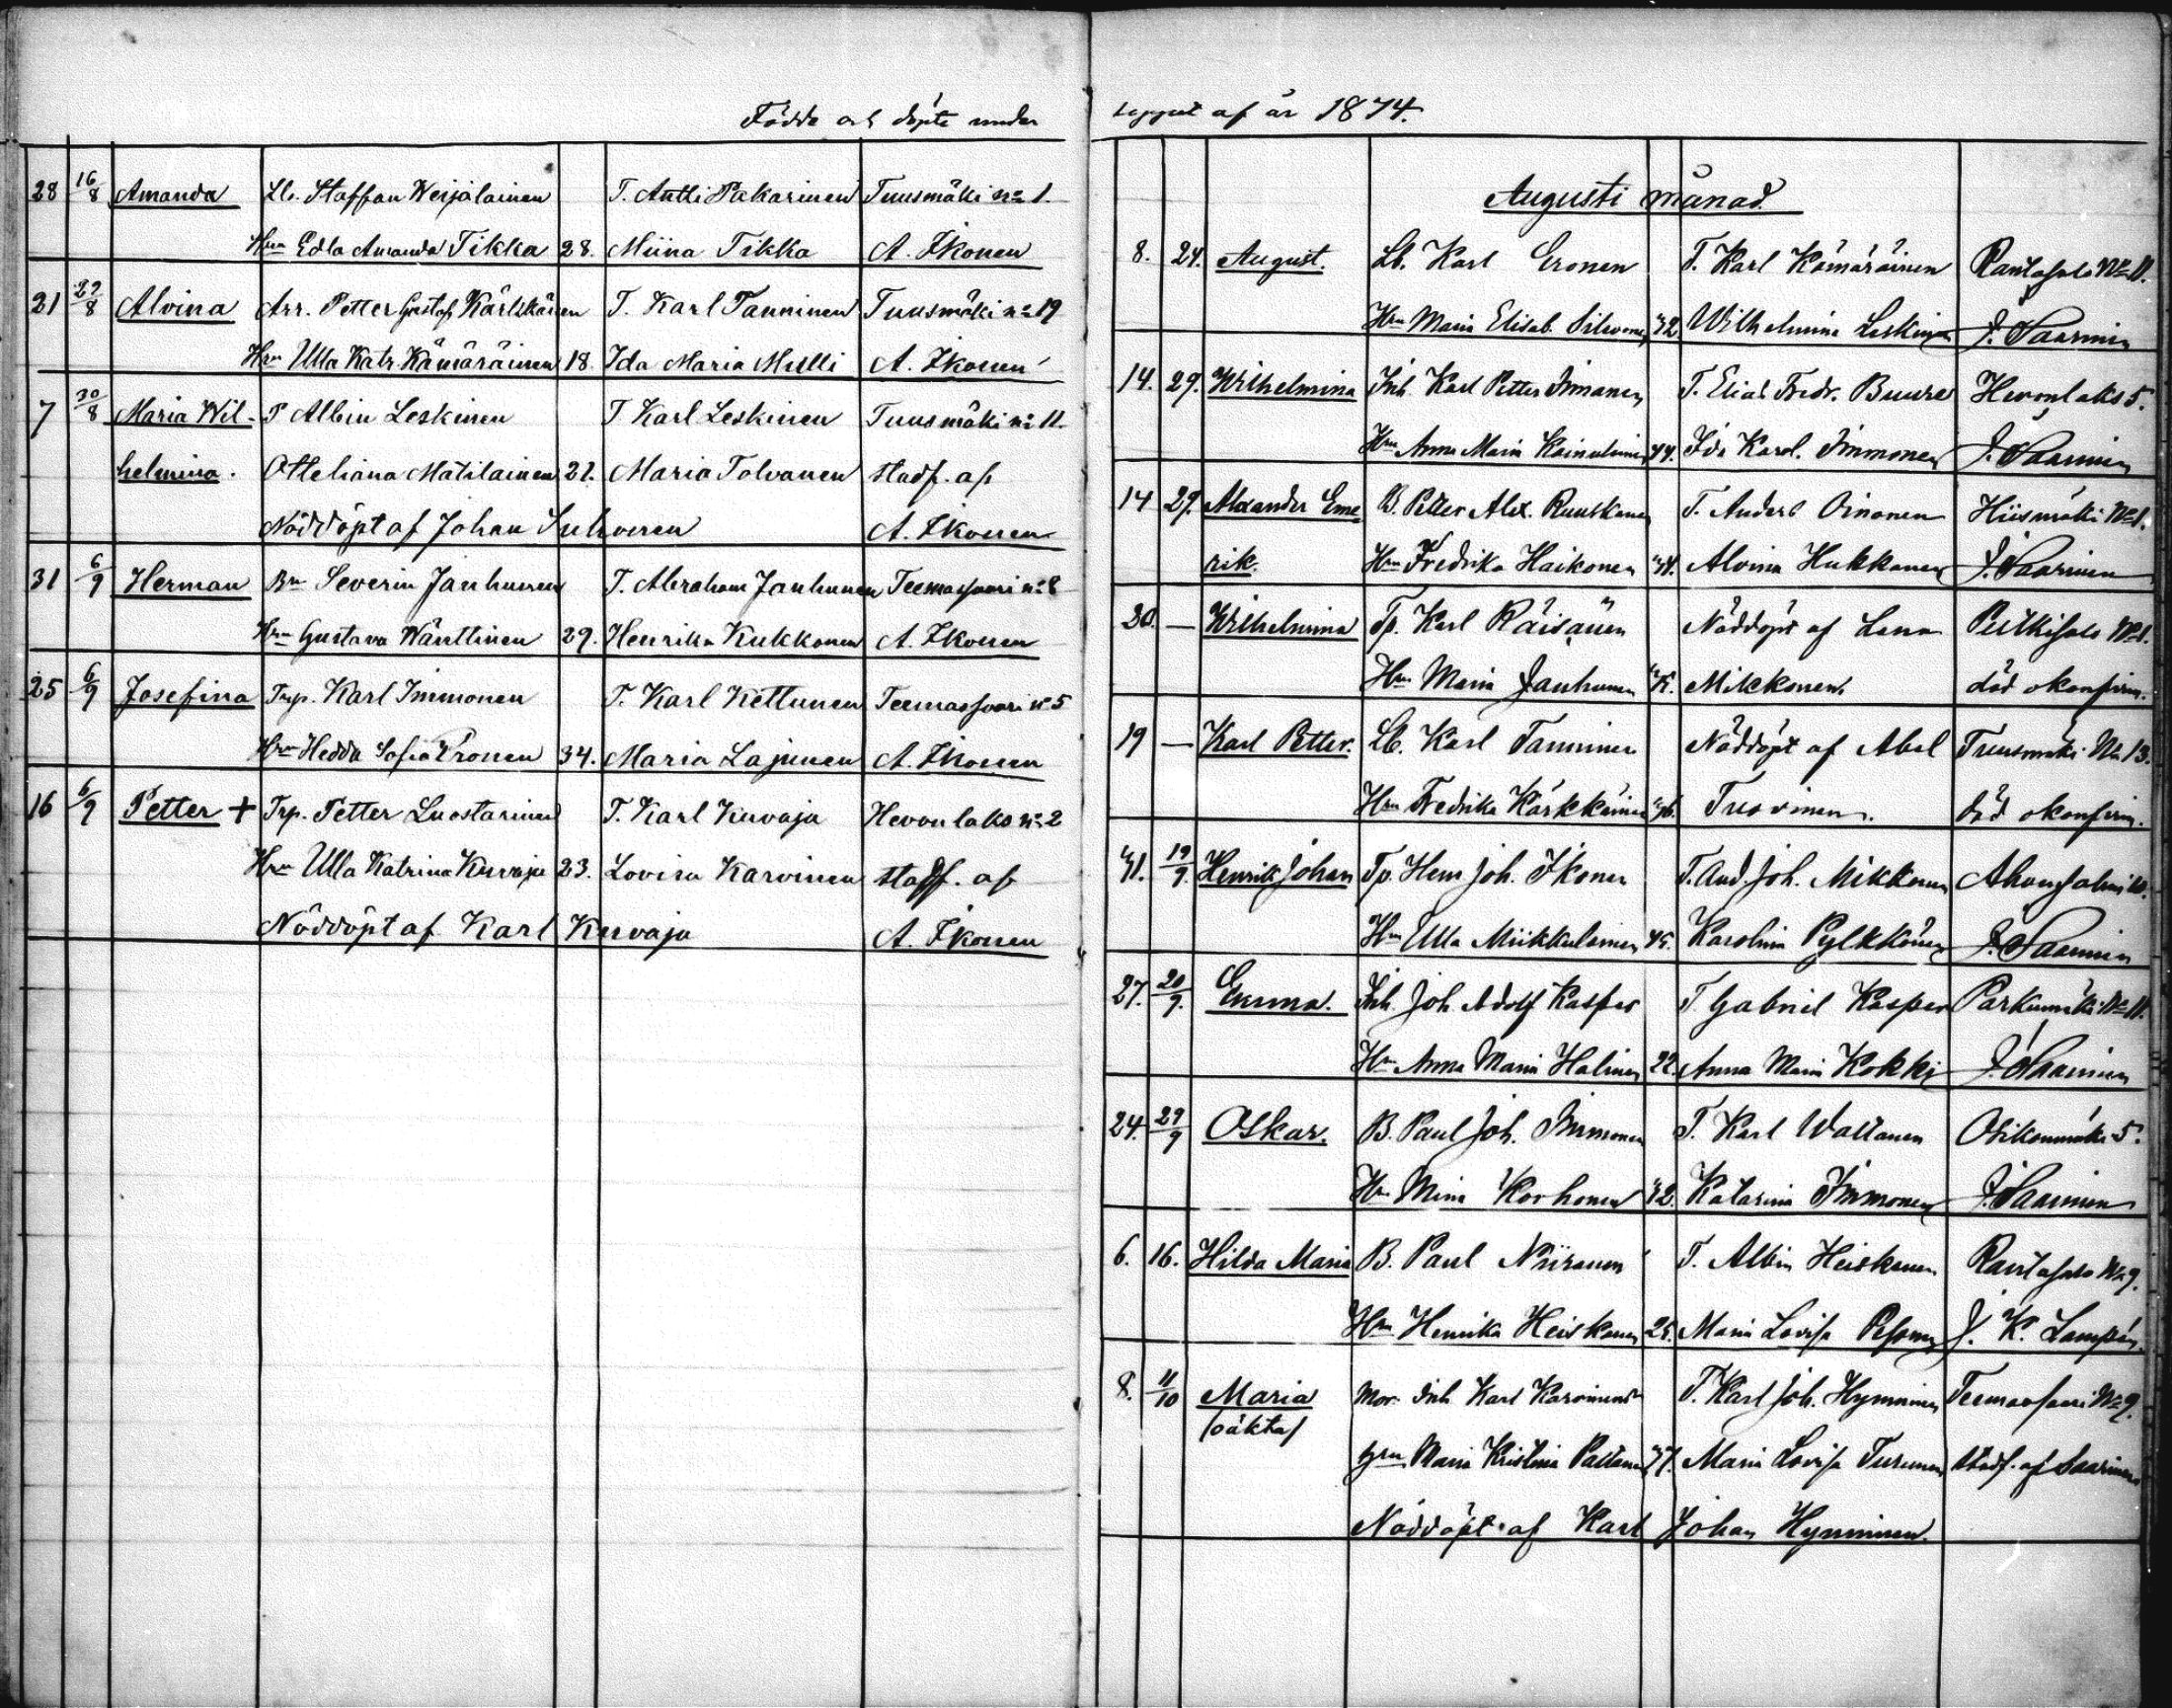 Födde och döpte under loppet af år 1874.
28 16/8 Amanda Lb. Staffan Weijalainen T. Antti Pakarinen Tuusmäki No 1.
Hru Edla Amanda Tikka 28. Miina Tikka A. Ikonen
21 29/8 Alvina Arr. Petter Gustaf Kärkkäinen T. Karl Tanninen Tuusmäki No 19
Hru Ulla Katr. Kämäräinen 18. Ida Maria Mulli A. Ikonen
7 30/8 Maria Wil- T Albin Leskinen T Karl Leskinen Tuusmäki No 11.
helmina. Otteliana Matilainen 27. Maria Tolvanen stadf. af
Nöddöpt af Johan Suhonen A. Ikonen
31 6/9 Herman Bn Severin Janhunen T. Abraham Janhunen Teemassaari No 8
Hru Gustava Wänttinen 29. Henrika Kukkonen A. Ikonen
25 6/9 Josefina Trp. Karl Immonen T. Karl Kettunen Teemassaari No 5
Hru Hedda Sofia Eronen 34. Maria Lajunen A. Ikonen
16 6/9 Petter + Trp. Petter Luostarinen T. Karl Kuvaja Hevonlaks No 2
Hru Ulla Katrina Kuvaja 23. Lovisa Karvinen stadf. af
Nöddöpt af Karl Kuvaja A. Ikonen
Augusti månad.
8. 24. August. Lb. Karl Eronen T. Karl Kämäräinen Rantasalo No 11.
Hru Maria Elisab. Silvonen 32 Wilhelmina Leskinen J. Saarinen
14. 29. Wilhelmina Inh. Karl Petter Immonen T. Elias Fredr. Buure Hevonlaks 5.
Hru Anna Maria Kainulainen 44. Ida Karol. Immonen J. Saarinen
14 29. Alexander Eme- B. Petter Alex. Ruuskanen T. Anders Oinonen Hiismäki No 1.
rik. Hru Fredrika Haikonen 34. Alvina Hukkanen J. Saarinen
20. — Wilhelmina Tp. Karl Räisänen Nöddöpt af Lena Pitkisalo No 1.
Hru Maria Janhunen Mikkonen. död okonfirm.
19 — Karl Petter. Lb. Karl Tanninen Nöddöpt af Abel Tuusmäki No 13.
Hru Fredrika Kärkkäinen 36. Tuovinen. död okonfirm.
31. 19/9. Henrik Johan Tp. Henr Joh. Ikonen T. And. Joh. Mikkonen Ahonsalmi 10.
Hru Ulla Miikkulainen 45. Karolina Pylkkönen J. Saarinen
27. 20/9. Emma. Inh. Joh. Adolf Kasper T. Gabriel Kasper Parkumäki No 11.
Hru Anna Maria Halinen 22. Anna Maria Kokki J. Saarinen
24. 27/9 Oskar. B. Paul Joh. Immonen T. Karl Wattanen Osikonmäki 5.
Hru Mina Korhonen 32. Katarina Immonen J. Saarinen
6. 16. Hilda Maria B. Paul Niiranen T. Albin Heiskanen Rantasalo No 9.
Hru Henrika Heiskanen 25. Maria Lovisa Pesonen J. K. Lampén.
8. 11/10 Maria Mor. Inh. Karl Karvinens T. Karl Joh. Hynninen Teemassaari No 9.
/oäkta/ hru Maria Kristina Pattanen 37. Maria Lovisa Turunen stadf. af Saarinen
Nöddöpt af Karl Johan Hynninen.